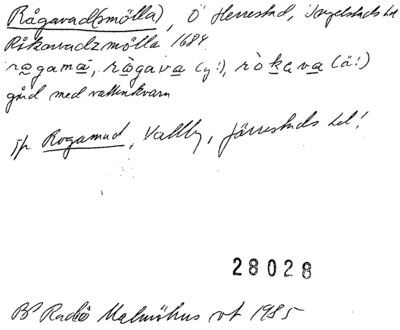 Rågavad(smölla), Ö Herrestad, Ingelstads hd
Råkavadzmölla 1684
rågamá, rågava (y!), ròkava (ä!)
gård med vattenkvarn
jfr Rogamad, Vallby, Järrestads hd!
28028
Bs Radio Malmöhus vt 1985